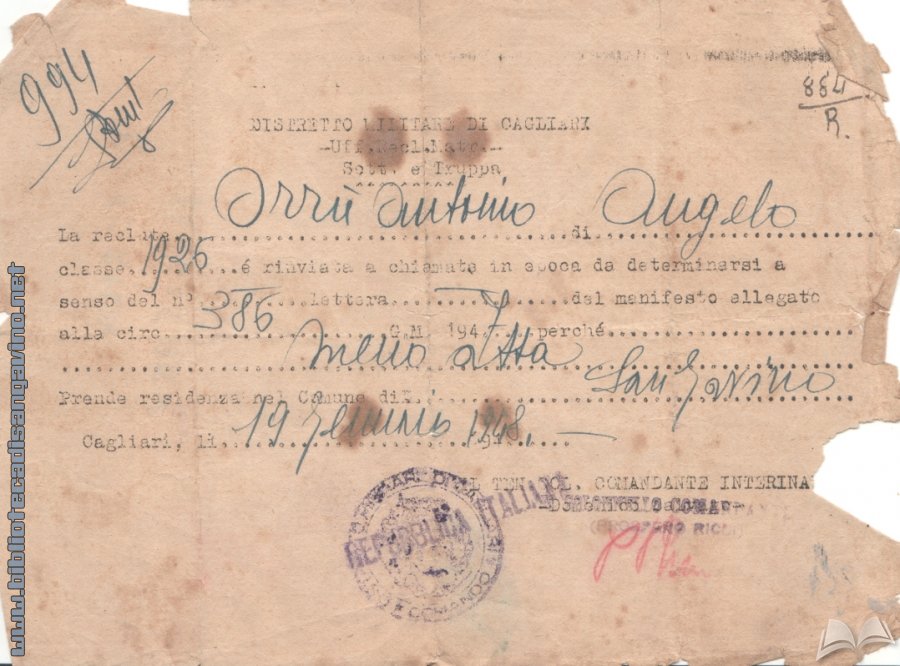 994
884
R.
DISTRETTO MILITARE DI CAGLIARI
-Uff.Recl.Matr.-
Sott. e Truppa
La recluta Orrù Antonio di Angelo
classe 1926 é rinviata a chiamata in epoca da determinarsi a
senso del n° — lettera — del manifesto allegato
alla circ. 386 G.M. 1947 perché
meno atto
Prende residenza nel Comune di San Gavino
Cagliari, li 19 Gennaio 1948. —
IL TEN. COL. COMANDANTE INTERINA
REPUBBLICA ITALIANA
COMANDO
www.bibliotecadisangavino.net